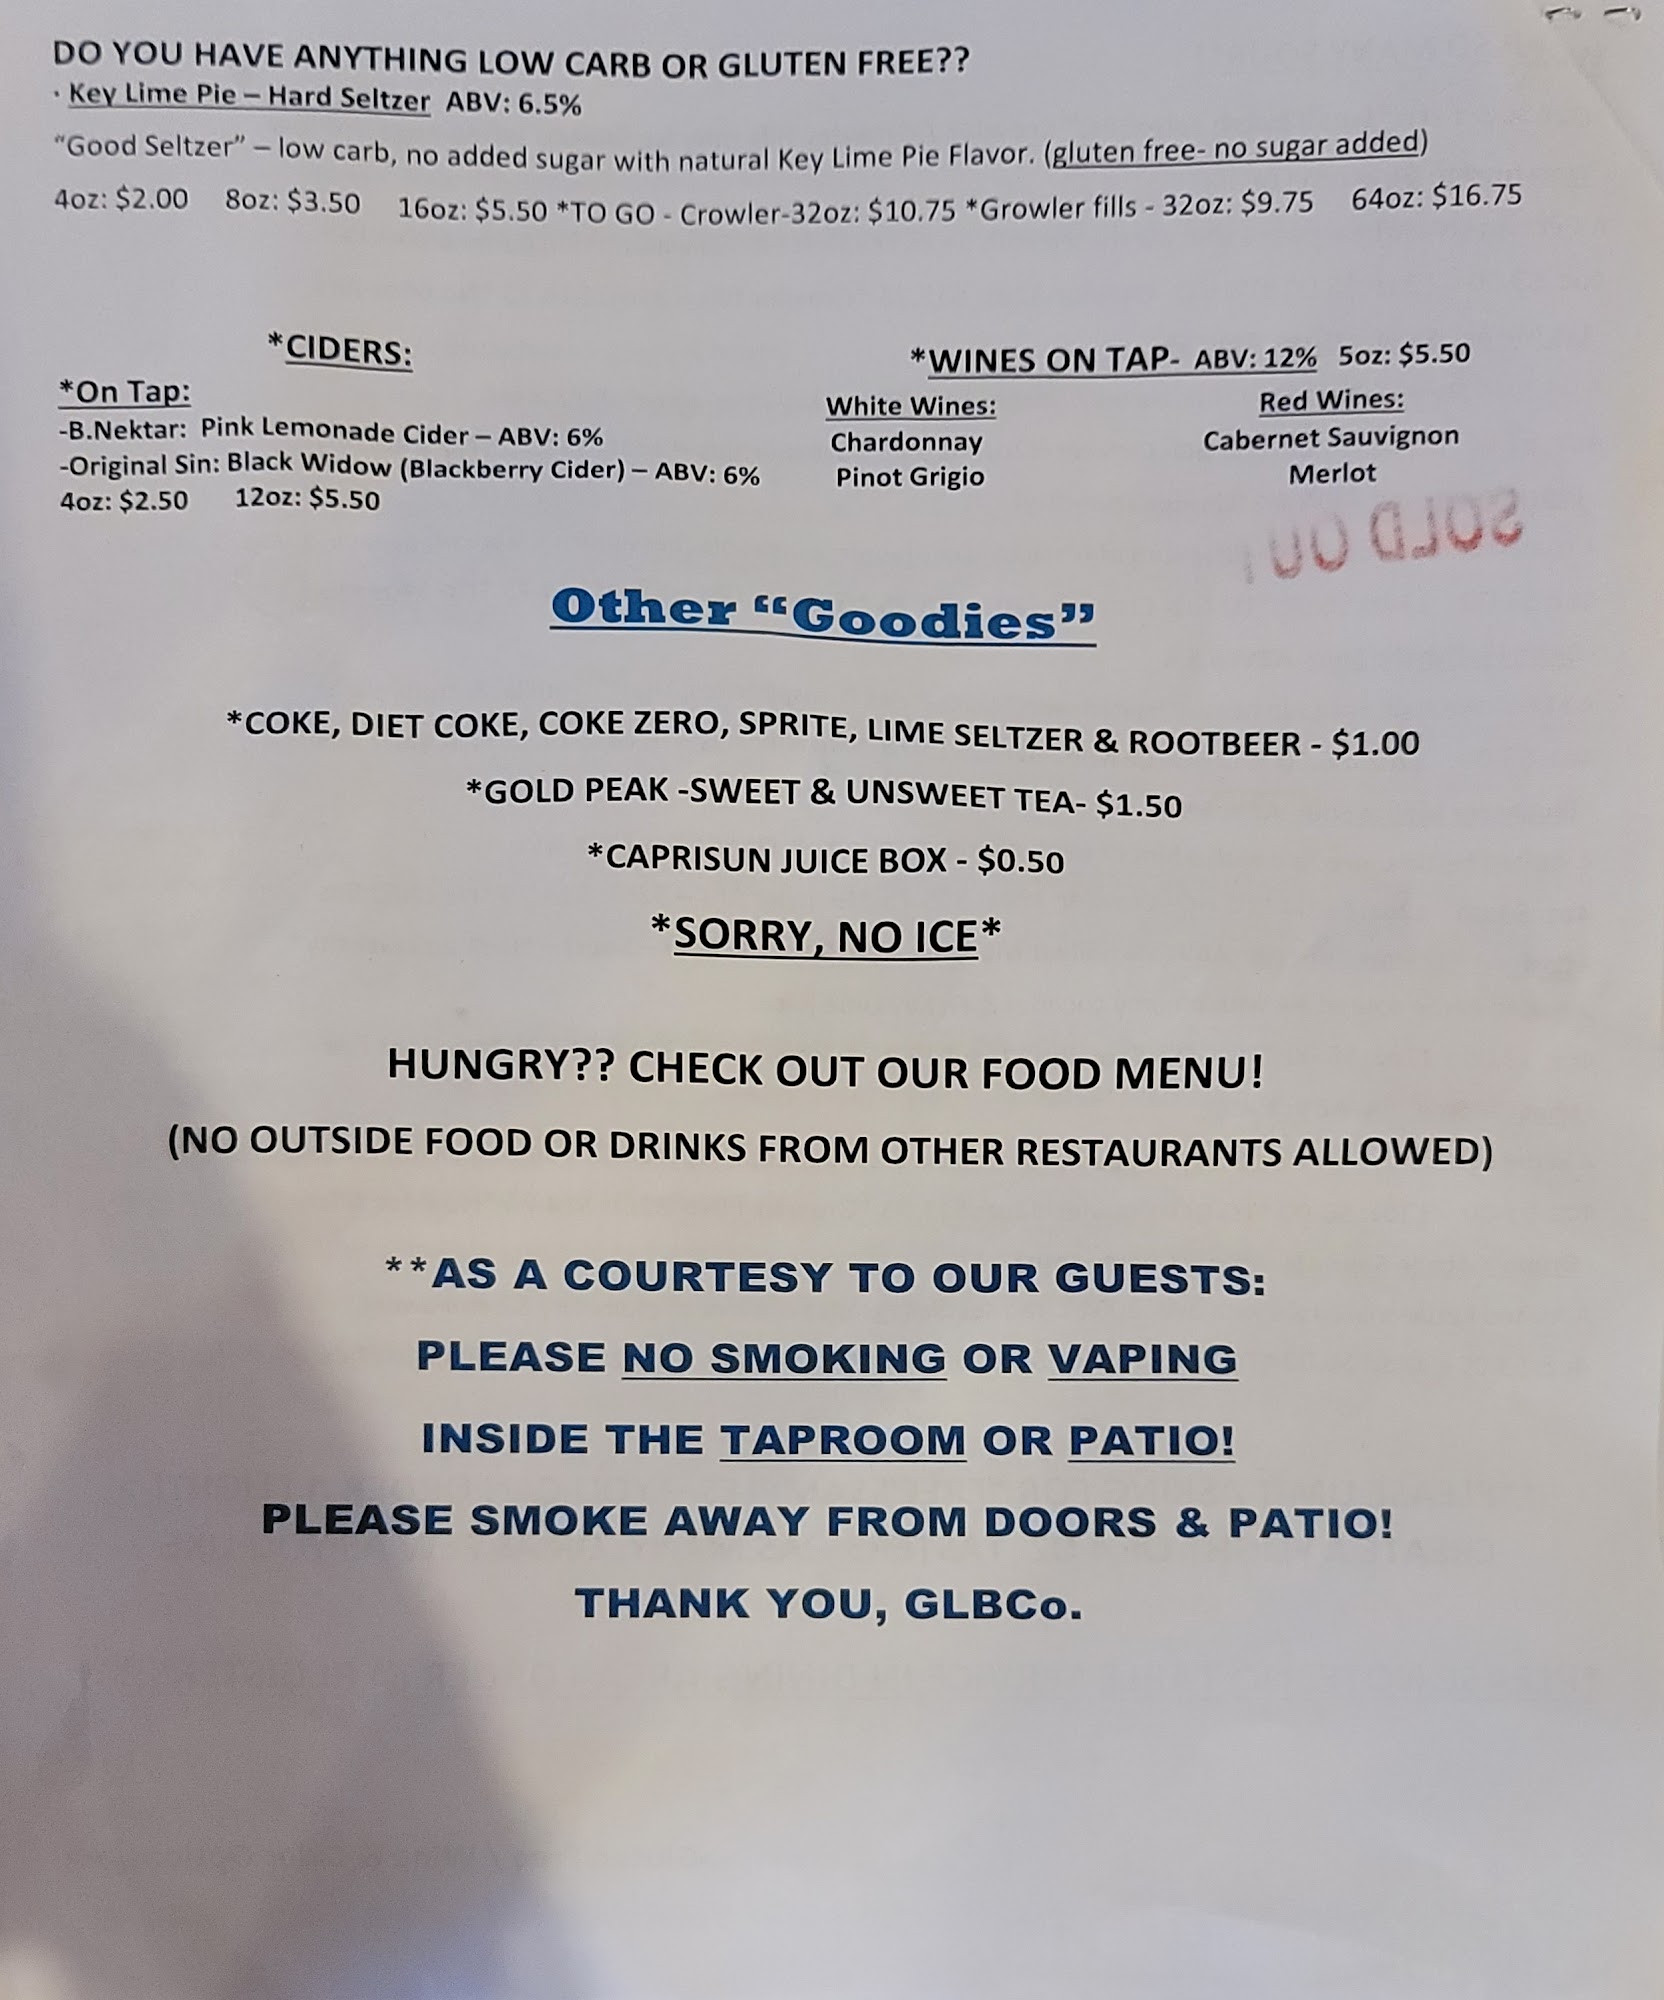 DO YOU HAVE ANYTHING LOW CARB OR GLUTEN FREE??
· Key Lime Pie – Hard Seltzer ABV: 6.5%
“Good Seltzer” – low carb, no added sugar with natural Key Lime Pie Flavor. (gluten free- no sugar added)
4oz: $2.00 8oz: $3.50 16oz: $5.50 *TO GO - Crowler-32oz: $10.75 *Growler fills - 32oz: $9.75 64oz: $16.75
*CIDERS:
*On Tap:
-B.Nektar: Pink Lemonade Cider – ABV: 6%
-Original Sin: Black Widow (Blackberry Cider) – ABV: 6%
4oz: $2.50 12oz: $5.50
*WINES ON TAP- ABV: 12% 5oz: $5.50
White Wines:
Chardonnay
Pinot Grigio
Red Wines:
Cabernet Sauvignon
Merlot
SOLD OUT
Other “Goodies”
*COKE, DIET COKE, COKE ZERO, SPRITE, LIME SELTZER & ROOTBEER - $1.00
*GOLD PEAK -SWEET & UNSWEET TEA- $1.50
*CAPRISUN JUICE BOX - $0.50
*SORRY, NO ICE*
HUNGRY?? CHECK OUT OUR FOOD MENU!
(NO OUTSIDE FOOD OR DRINKS FROM OTHER RESTAURANTS ALLOWED)
**AS A COURTESY TO OUR GUESTS:
PLEASE NO SMOKING OR VAPING
INSIDE THE TAPROOM OR PATIO!
PLEASE SMOKE AWAY FROM DOORS & PATIO!
THANK YOU, GLBCo.